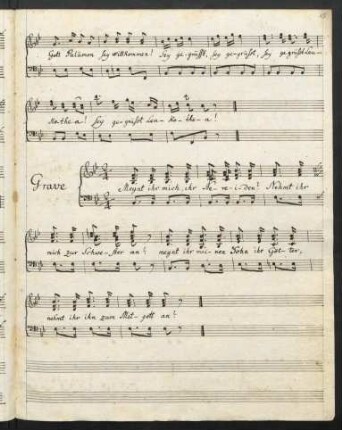 Gott Palämon sey willkommen! Sey ge-grüsst, sey ge-grüsst, sey gegrüsst Leu-
ko-the-a! Sey ge-grüsst Leu-ko-the-a!
Grave
Meynt ihr mich, ihr Ne-re-i-den! Nehmt ihr
mich zur Schwe-ster an? meynt ihr mei-nen Sohn ihr Göt-ter,
nehmt ihr ihn zum Mit-gott an?